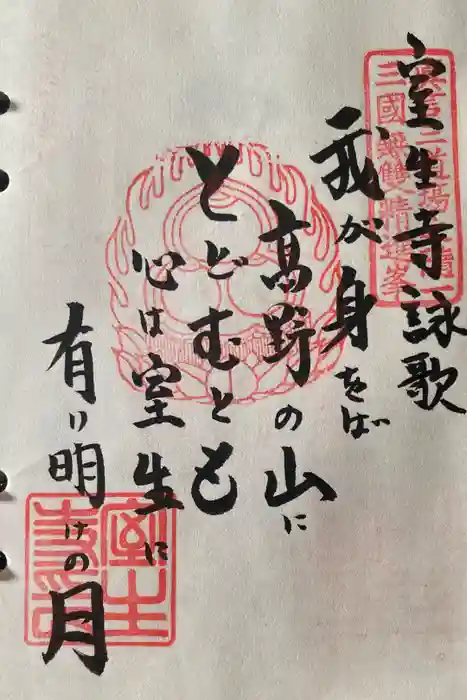 室生寺詠歌
我が身をば
高野の山に
とどむとも
心は室生に
有り明けの月
三國無雙精進峯